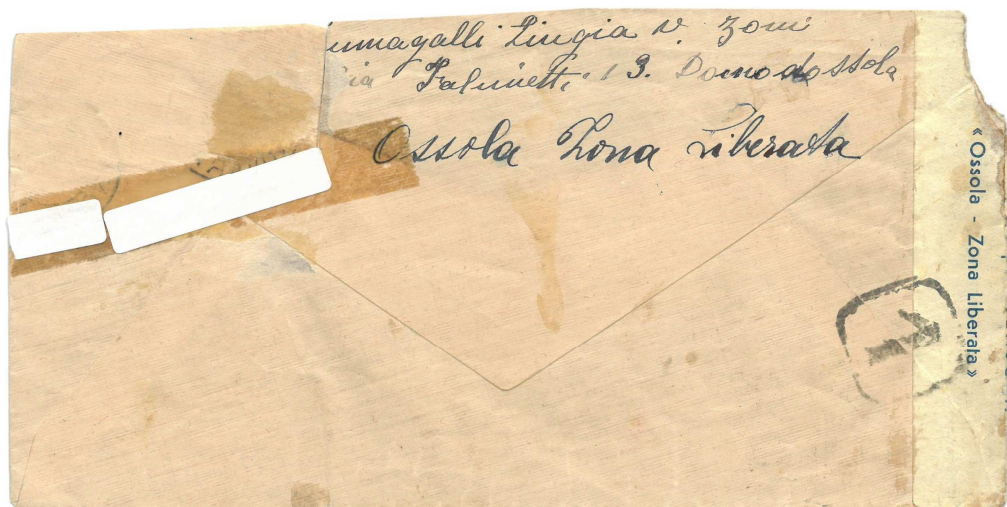 umagalli Luigia v. Zoni
ia Palmetti 13. Domodossola
Ossola Zona Liberata
«Ossola - Zona Liberata»
1